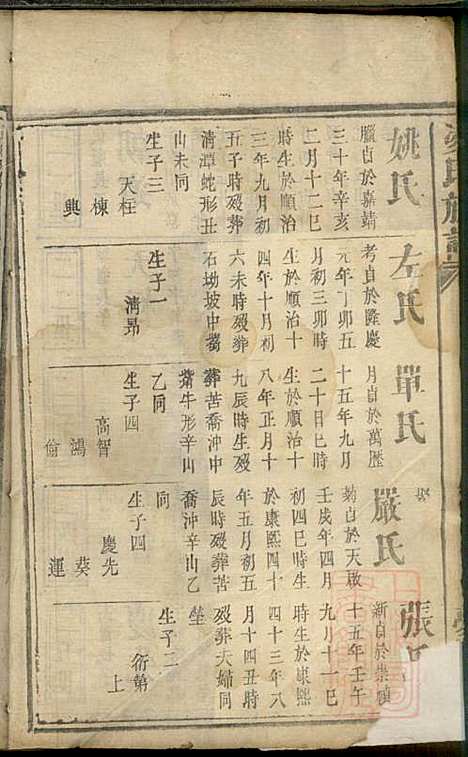 姚氏
臘自於嘉靖
三十年辛亥
二月十二巳
時生於順治
三年九月初
五子時歿葬
清潭蛇形丑
山未同
生子三
天柱
棟
興
左氏
考自於隆慶
元年丁卯五
月初三卯時
生於順治十
四年十月初
六未時歿葬
石坳坡中
生子一
清昴
單氏
月自於萬歴
十五年九月
二十日巳時
生於順治十
八年正月十
九辰時生歿
葬苦喬沖中
牛形辛山
乙同
生子四
高智
鴻
嚴氏
菊自於天啟
壬戌年四月
初四巳時生
於康熙四十
年五月初五
辰時歿葬苦
喬沖辛山乙
同
生子四
慶先
葵
運
張氏
新自於崇禎
十五年壬午
九月十一巳
時生於康熙
四十三年八
月十四丑時
歿葬夫婦同
坐
生子二
衍第
上